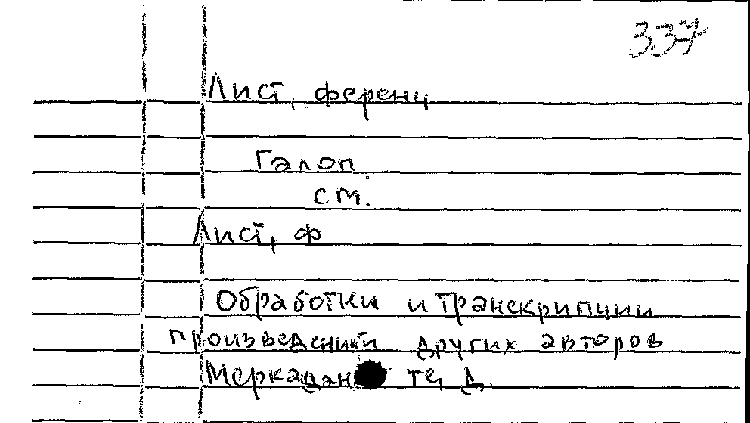 337
Лист, ференц
Галоп.
см.
Лист, ф
Обработки и транскрипции
произведений других авторов
Меркаданте, Д